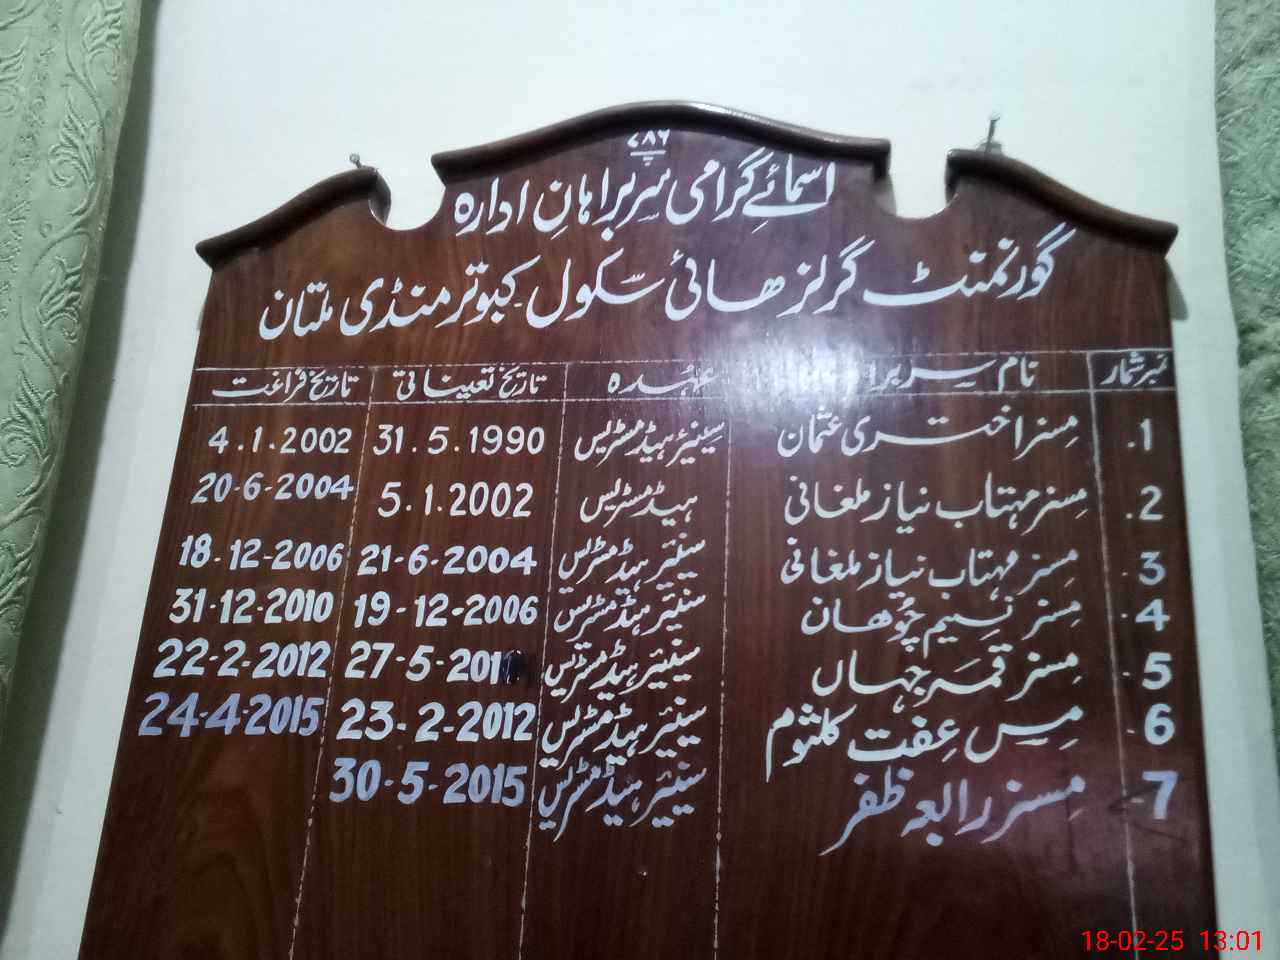 ۷۸۶
اسمائے گرامی سربراہانِ ادارہ
گورنمنٹ گرلز ھائی سکول کبوتر منڈی ملتان
نمبر شمار نام سربراہ عہدہ تاریخ تعیناتی تاریخ فراغت
1. مسز اختری عثمان سینئر ہیڈ مسٹریس 31.5.1990 4.1.2002
2. مسز مہتاب نیاز ملغانی ہیڈ مسٹریس 5.1.2002 20-6-2004
3. مسز مہتاب نیاز ملغانی سینئر ہیڈ مسٹریس 21-6-2004 18-12-2006
4. مسز نسیم چُوھان سینئر ہیڈ مسٹریس 19-12-2006 31-12-2010
5. مسز قمر جہاں سینئر ہیڈ مسٹریس 27-5-2011 22-2-2012
6. مِس عِفت کلثوم سینئر ہیڈ مسٹریس 23-2-2012 24-4-2015
7. مسز رابعہ ظفر سینئر ہیڈ مسٹریس 30-5-2015
18-02-25 13:01